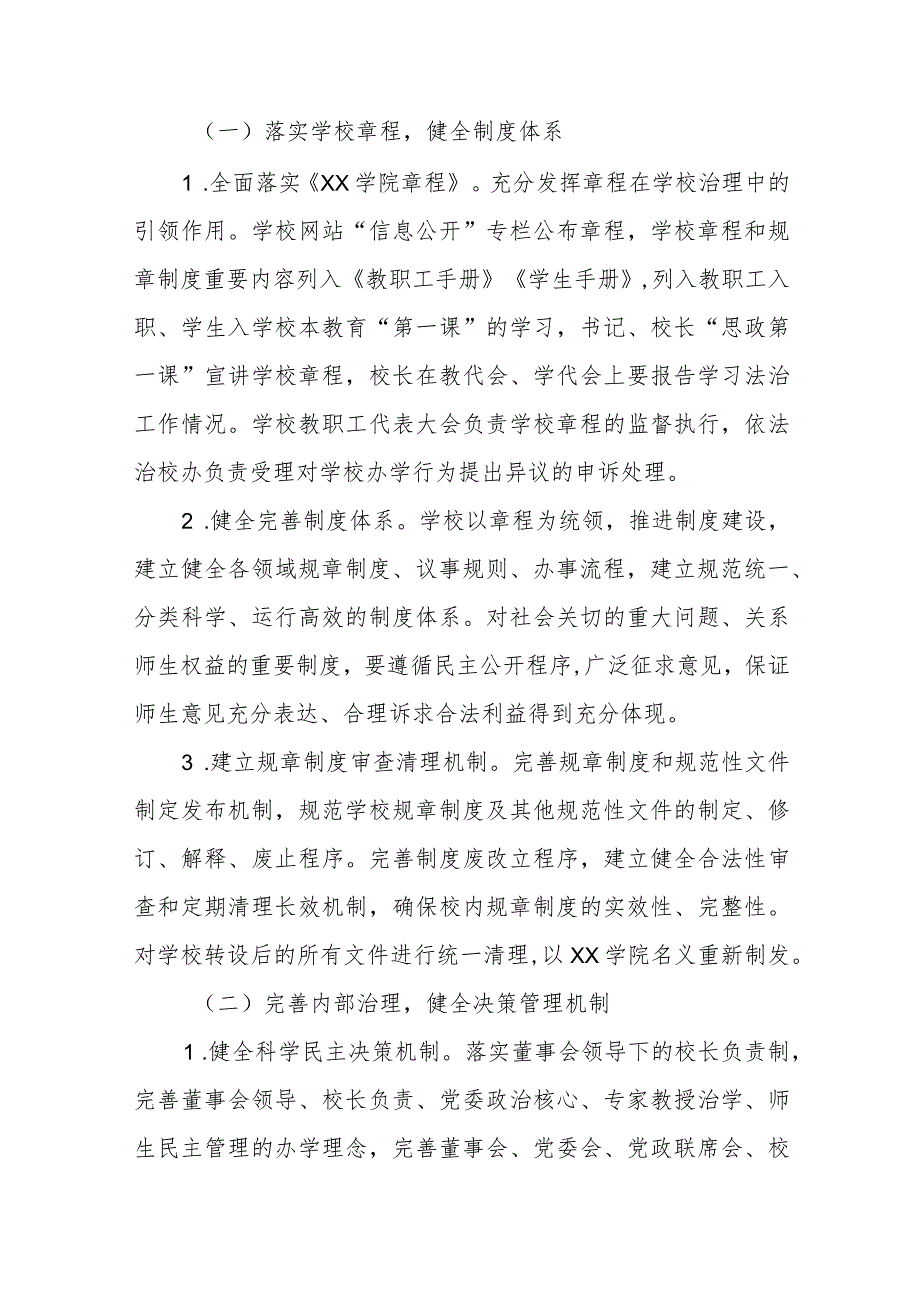 （一）落实学校章程，健全制度体系
1 .全面落实《XX 学院章程》。充分发挥章程在学校治理中的
引领作用。学校网站“信息公开”专栏公布章程，学校章程和规
章制度重要内容列入《教职工手册》《学生手册》,列入教职工入
职、学生入学校本教育“第一课”的学习，书记、校长“思政第
一课”宣讲学校章程，校长在教代会、学代会上要报告学习法治
工作情况。学校教职工代表大会负责学校章程的监督执行，依法
治校办负责受理对学校办学行为提出异议的申诉处理。
2 .健全完善制度体系。学校以章程为统领，推进制度建设，
建立健全各领域规章制度、议事规则、办事流程，建立规范统一、
分类科学、运行高效的制度体系。对社会关切的重大问题、关系
师生权益的重要制度，要遵循民主公开程序,广泛征求意见，保证
师生意见充分表达、合理诉求合法利益得到充分体现。
3 .建立规章制度审查清理机制。完善规章制度和规范性文件
制定发布机制，规范学校规章制度及其他规范性文件的制定、修
订、解释、废止程序。完善制度废改立程序，建立健全合法性审
查和定期清理长效机制，确保校内规章制度的实效性、完整性。
对学校转设后的所有文件进行统一清理,以 XX 学院名义重新制发。
（二）完善内部治理，健全决策管理机制
1 .健全科学民主决策机制。落实董事会领导下的校长负责制，
完善董事会领导、校长负责、党委政治核心、专家教授治学、师
生民主管理的办学理念，完善董事会、党委会、党政联席会、校